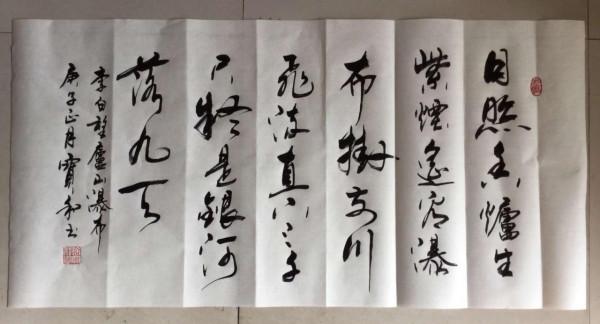 日照香爐生
紫煙遙看瀑
布掛前川
飛流直下三千
尺疑是銀河
落九天
李白望廬山瀑布
庚子正月寶和书